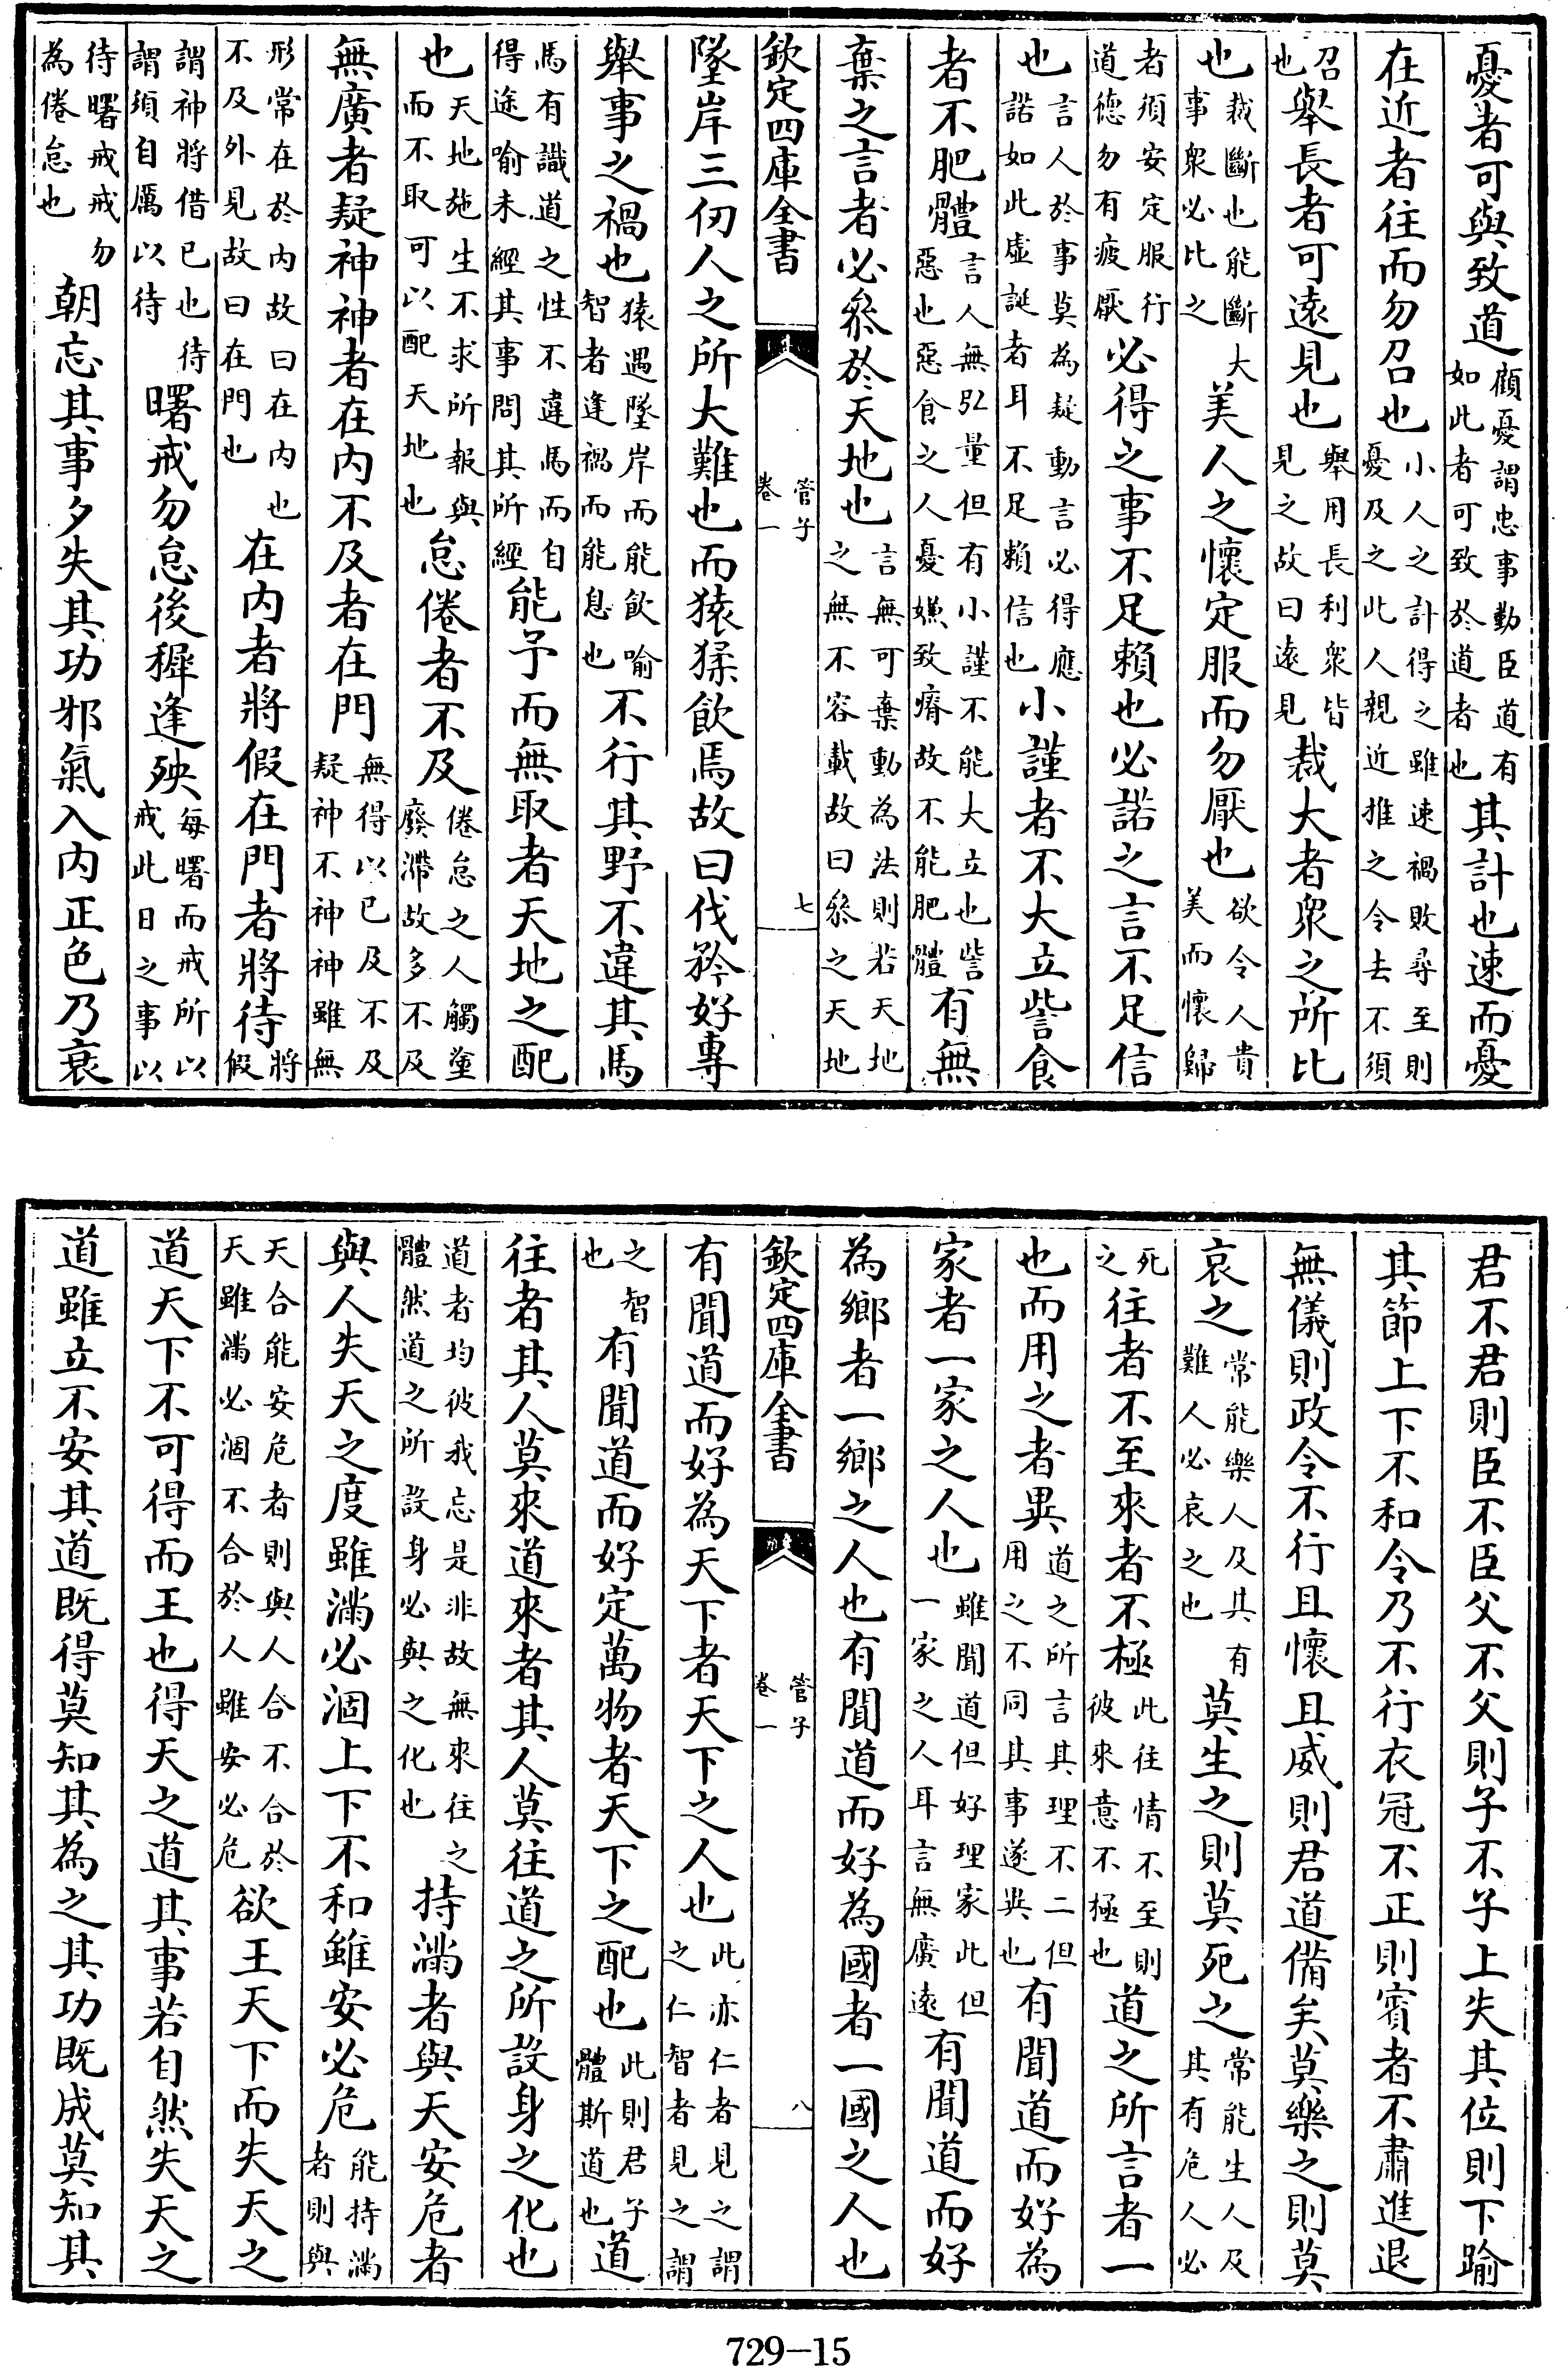 憂者可與致道顧憂謂忠事勤臣道有如此者可致於道者也其計也速而憂
在近者往而勿召也小人之計得之雖速禍敗尋至則憂及之此人親近推之令去不須
召也舉長者可遠見也舉用長利衆皆見之故曰遠見裁大者衆之所比
也裁斷也能斷大事衆必比之美人之懷定服而勿厭也欲令人貴美而懷歸
者須安定服行道德勿有疲厭必得之事不足賴也必諾之言不足信
也言人於事莫為疑動言必得應諾如此虛誕者耳不足賴信也小謹者不大立訾食
者不肥體言人無弘量但有小謹不能大立也訾惡也惡食之人憂嫌致瘠故不能肥體有無
棄之言者必叅於天地也言無可棄動為法則若天地之無不容載故曰叅之天地
欽定四庫全書 管子 卷一 七
墜岸三仞人之所大難也而猿猱飲焉故曰伐矜好專
舉事之禍也猿遇墜岸而能飲喻智者逢禍而能息也不行其野不違其馬
馬有識道之性不違馬而自得途喻未經其事問其所經能予而無取者天地之配
也天地施生不求所報與而不取可以配天地也怠倦者不及倦怠之人觸塗廢滯故多不及
無廣者疑神神者在內不及者在門無得以已及不及疑神不神神雖無
形常在於內故曰在內也不及外見故曰在門也在內者將假在門者將待將假
謂神將借已也待謂須自厲以待曙戒勿怠後穉逢殃每曙而戒所以戒此日之事以
待曙戒戒勿為倦怠也朝忘其事夕失其功邪氣入內正色乃衰
君不君則臣不臣父不父則子不子上失其位則下踰
其節上下不和令乃不行衣冠不正則賓者不肅進退
無儀則政令不行且懷且威則君道備矣莫樂之則莫
哀之常能樂人及其有難人必哀之也莫生之則莫死之常能生人及其有危人必
死之往者不至來者不極此往情不至則彼來意不極也道之所言者一
也而用之者異道之所言其理不二但用之不同其事遂異也有聞道而好為
家者一家之人也雖聞道但好理家此但一家之人耳言無廣遠有聞道而好
為鄉者一鄉之人也有聞道而好為國者一國之人也
欽定四庫全書 管子 卷一 八
有聞道而好為天下者天下之人也此亦仁者見之謂之仁智者見之謂
之智也有聞道而好定萬物者天下之配也此則君子體斯道也道
往者其人莫來道來者其人莫往道之所設身之化也
道者均彼我忘是非故無來往之體然道之所設身必與之化也持滿者與天安危者
與人失天之度雖滿必涸上下不和雖安必危能持滿者則與
天合能安危者則與人合不合於天雖滿必涸不合於人雖安必危欲王天下而失天之
道天下不可得而王也得天之道其事若自然失天之
道雖立不安其道既得莫知其為之其功既成莫知其
729-15